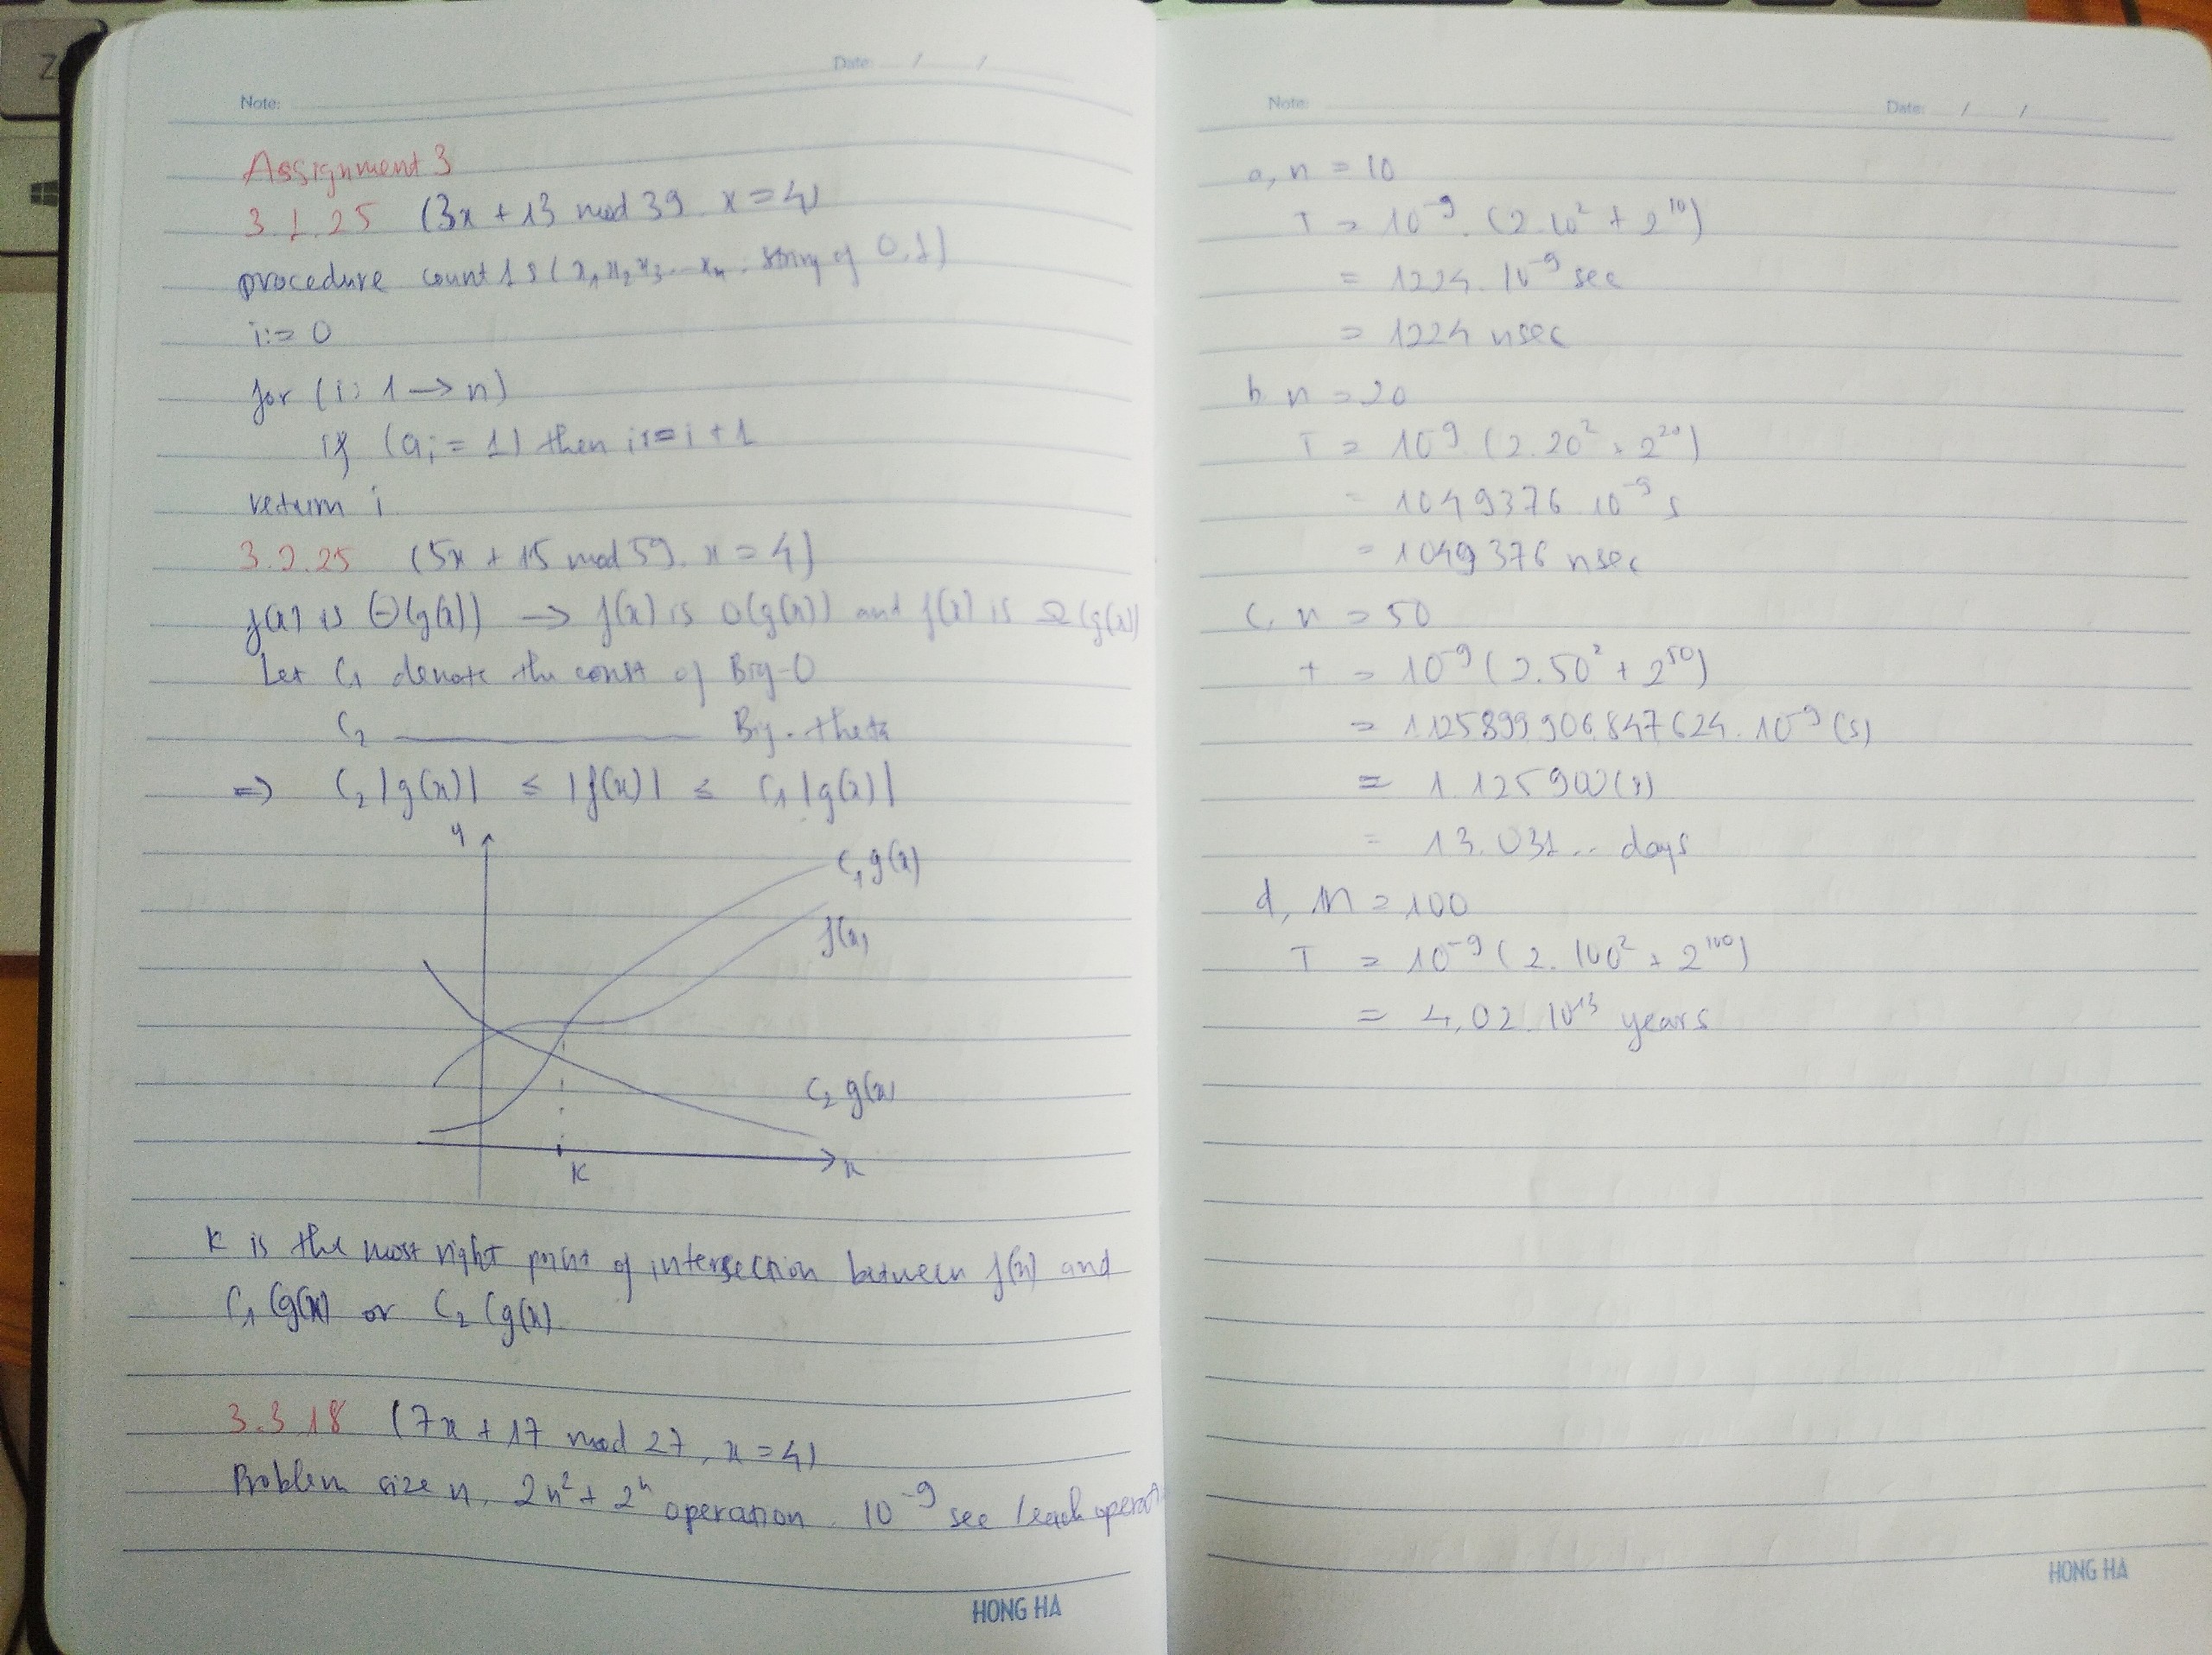 Z
Date: / /
Note:
Assignment 3
3.1.25 (3x + 13 mod 39. x = 4)
procedure count 1s (x₁ x₂ x₃... xₙ : string of 0,1)
i:= 0
for (i: 1 → n)
if (aᵢ = 1) then i:= i + 1
return i
3.2.25 (5x + 15 mod 59. x = 4)
f(x) is Θ(g(x)) → f(x) is O(g(x)) and f(x) is Ω(g(x))
Let C₁ denote the const of Big-O
C₂ ———— Big-theta
⇒ C₂|g(x)| ≤ |f(x)| ≤ C₁|g(x)|
y
C₁g(x)
f(x)
C₂ g(x)
x
K
K is the most right point of intersection between f(x) and
C₁(g(x) or C₂(g(x)
3.3.18 (7x + 17 mod 27, x = 4)
Problem size n. 2n² + 2ⁿ operation. 10⁻⁹ sec / each
HONG HA
Note: Date: / /
a, n = 10
T = 10⁻⁹. (2.10² + 2¹⁰)
= 1224. 10⁻⁹ sec
= 1224 nsec
b, n = 20
T = 10⁻⁹. (2.20² + 2²⁰)
= 1049376. 10⁻⁹ s
= 1049376 nsec
c, n = 50
T = 10⁻⁹ (2.50² + 2⁵⁰)
= 1125899906847624. 10⁻⁹ (s)
= 1.125900 (s)
= 13.031.. days
d, n = 100
T = 10⁻⁹ (2. 100² + 2¹⁰⁰)
= 4,02. 10¹³ years
HONG HA